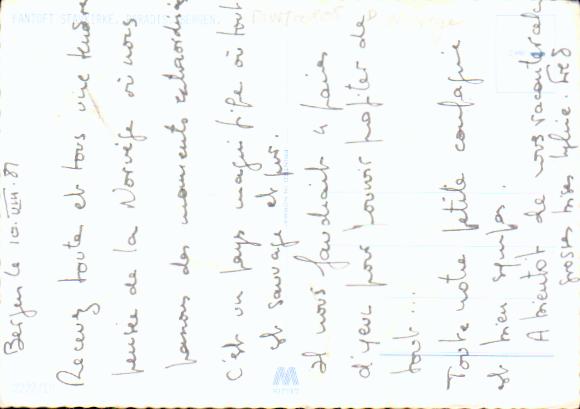 FANTOFT STAVKIRKE, PARADIS, BERGEN.
Norvège
Bergen le 10 VIII 81
Recevez toutes et tous une tendre
pensée de la Norvège où nous
passons des moments extraordin
C'est un pays magnifique où tout
est sauvage et pur.
Il nous faudrait 4 paires
d'yeux pour pouvoir profiter de
tout...
Toute notre petite compagnie
est bien sympa.
A bientôt de vous raconter
grosses bises Sylvie. Fred
2222/1
MITTET